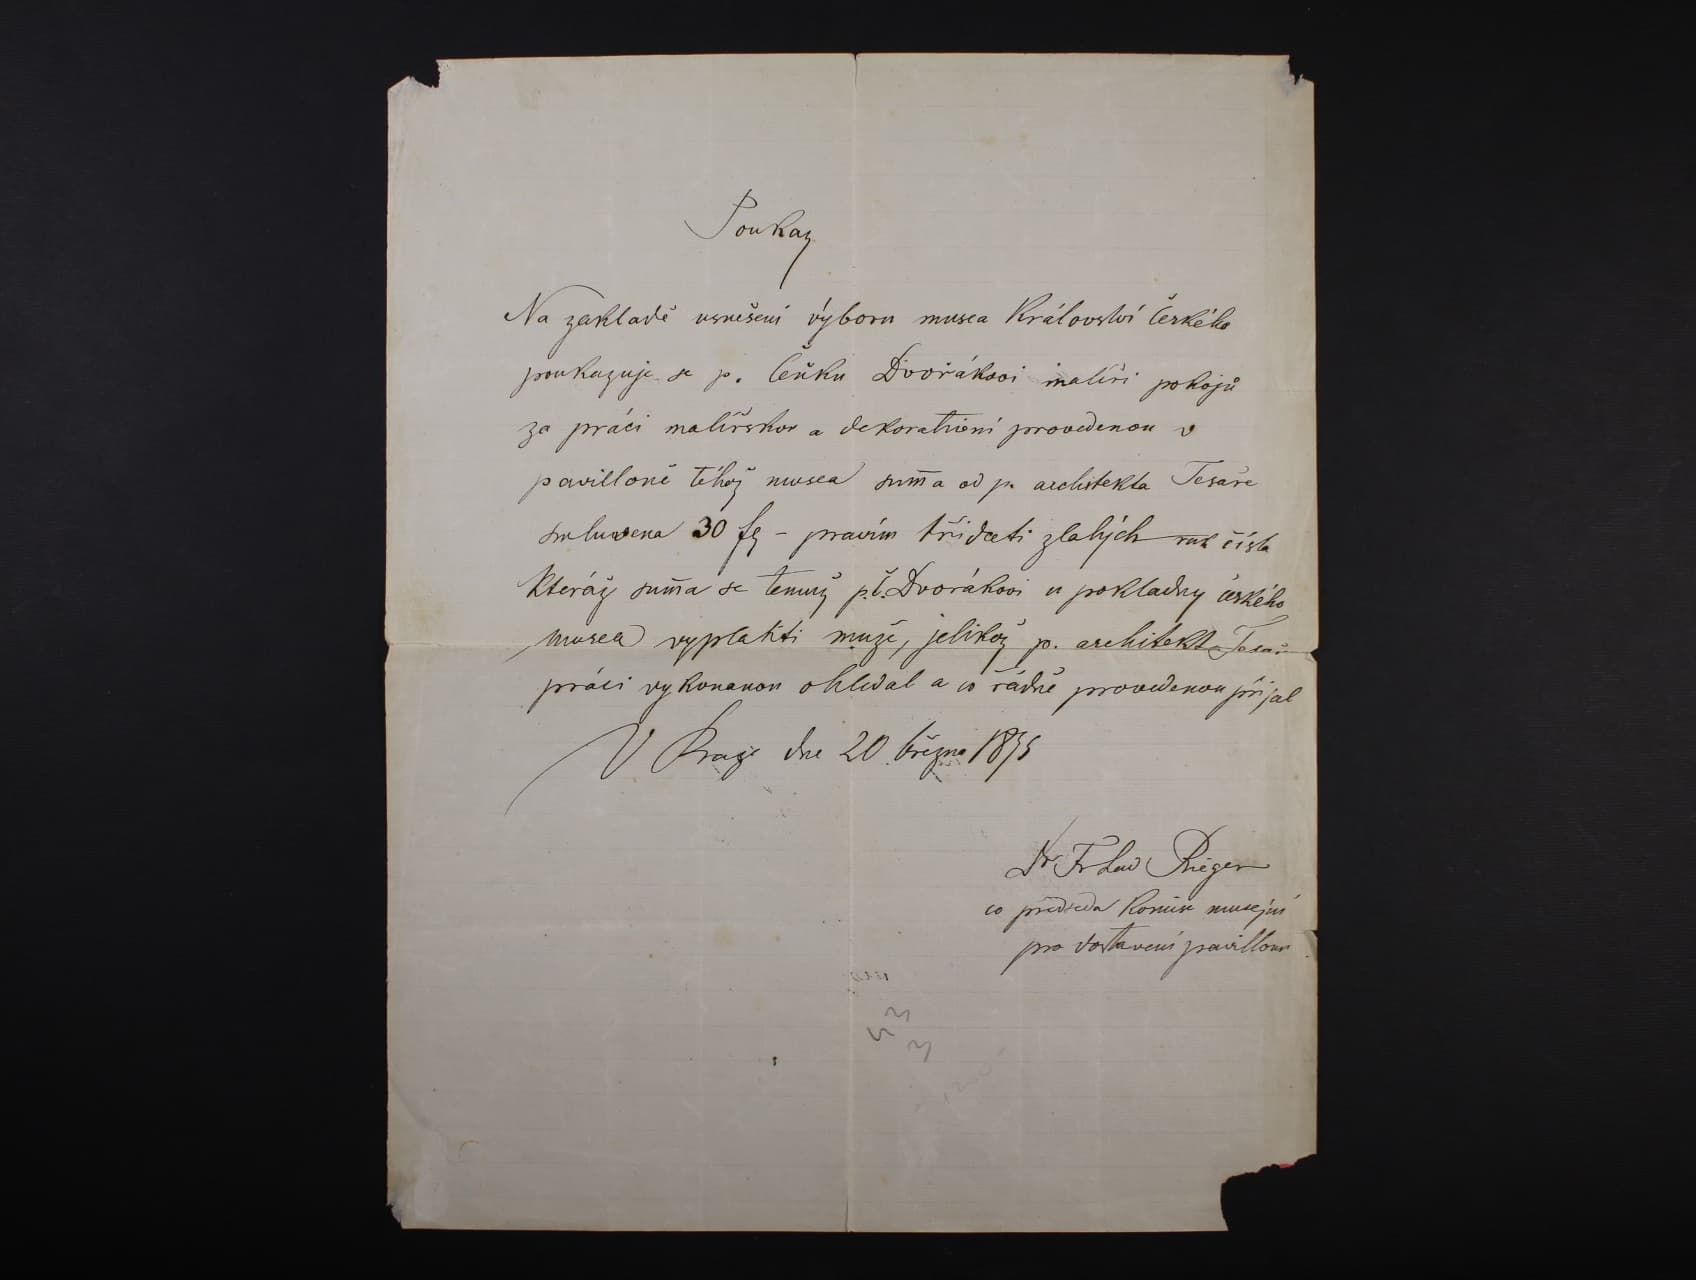 Poukaz
Na zakladě usnešení výboru musea Království Českého
poukazuje se p. Čeňku Dvořákovi malíři pokojů
za práci malířskou a dekorativní provedenou v
pavilloně téhož musea sum̄a od p. architekta Tesaře
smluvena 30 fz – pravím třidceti zlatých r. č. čísla
kteráž sum̄a se temuž p. č. Dvořákovi u pokladny českého
musea vyplatiti muže, jelikož p. architekt Tesař
práci vykonanou ohledal a co řádně provedenou přijal
V Praze dne 20 března 1895
Dr Fr Lad Rieger
co předseda komise musejní
pro dostavení pavillonu